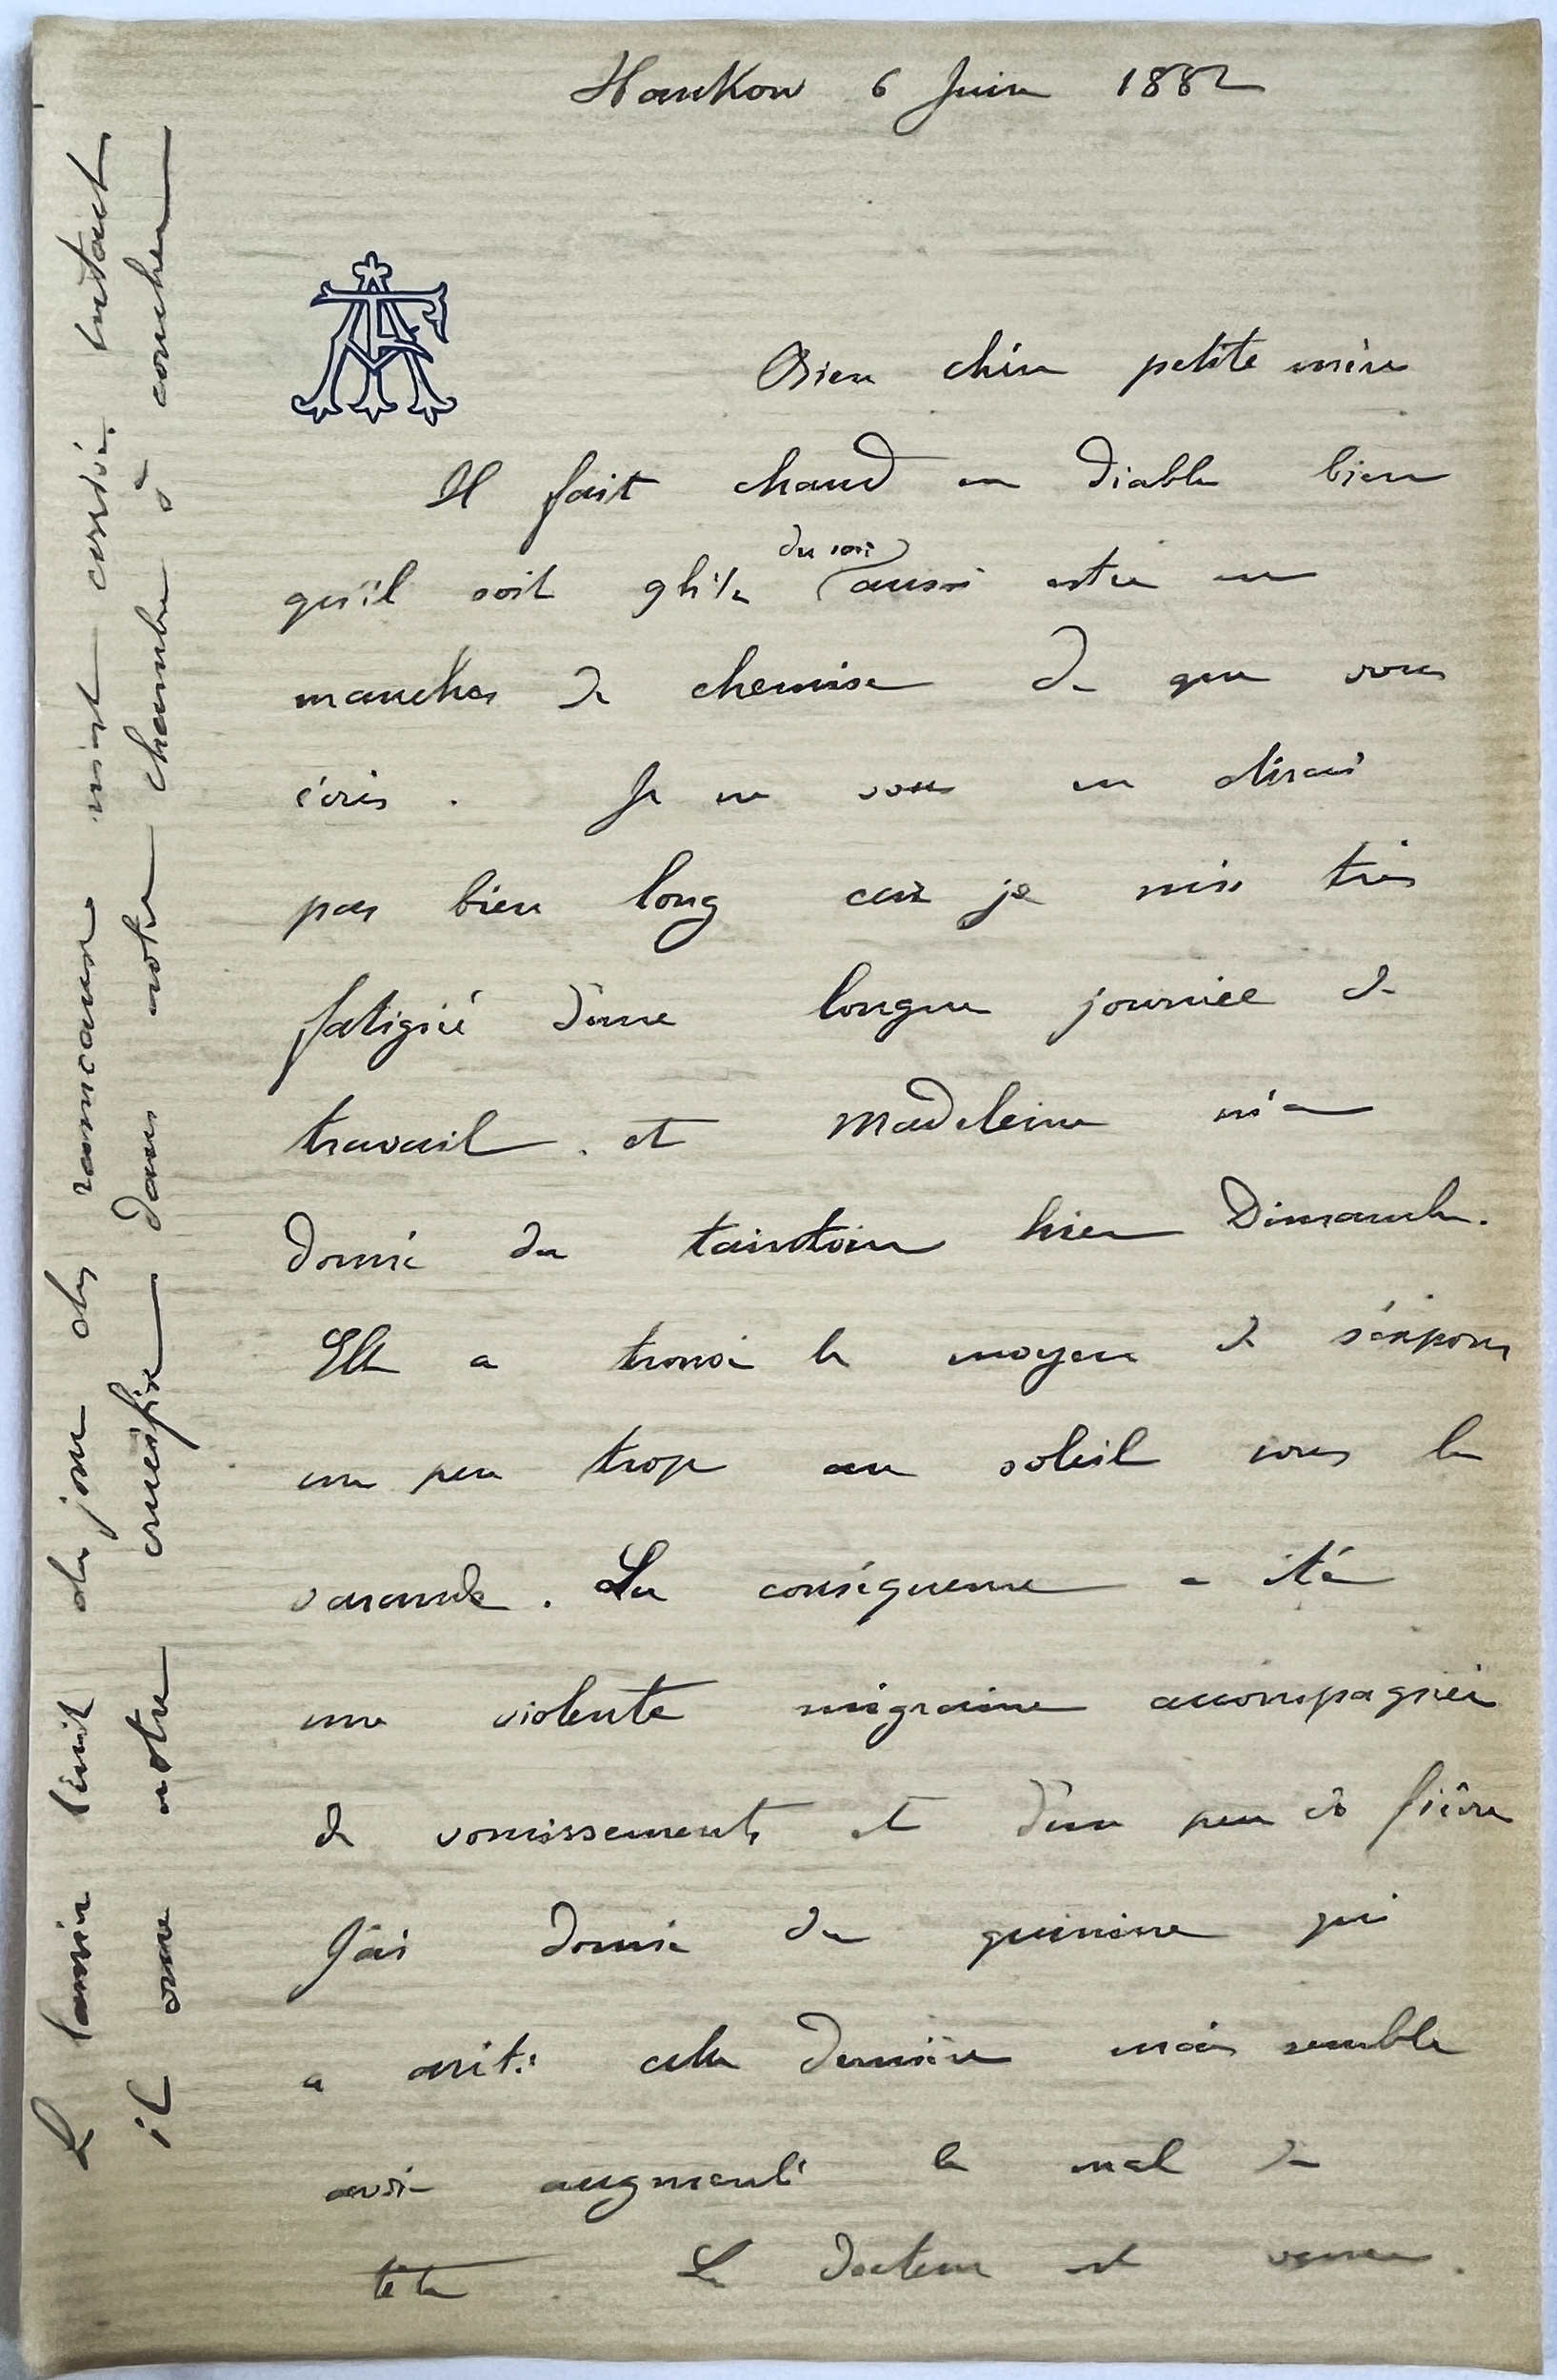 Hankow 6 Juin 1882
AF
Bien chère petite mère
Il fait chaud en diable bien
du soir
qu'il soit 9h½ aussi est-ce en
manches de chemise que vous
écris. Je ne vous en dirai
pas bien long car je suis très
fatigué d'une longue journée de
travail. et Madeleine m'a
donné du tintoin hier Dimanche.
Elle a trouvé le moyen de s'exposer
un peu trop au soleil sous la
varande. La conséquence a été
une violente migraine accompagnée
de vomissements et d'un peu de fièvre
J'ai donné de quinine qui
a arrêté cette dernière mais semble
avoir augmenté le mal de
tête. Le docteur est venu.
Le bénit du jour des rameaux m'est arrivé intact
il orne notre crucifix dans notre chambre à coucher